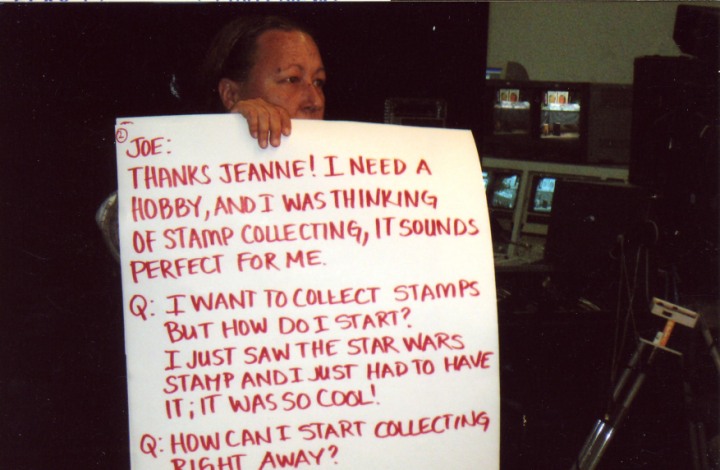 ① JOE:
THANKS JEANNE! I NEED A
HOBBY, AND I WAS THINKING
OF STAMP COLLECTING, IT SOUNDS
PERFECT FOR ME.
Q: I WANT TO COLLECT STAMPS
BUT HOW DO I START?
I JUST SAW THE STAR WARS
STAMP AND I JUST HAD TO HAVE
IT; IT WAS SO COOL!
Q: HOW CAN I START COLLECTING
RIGHT AWAY?